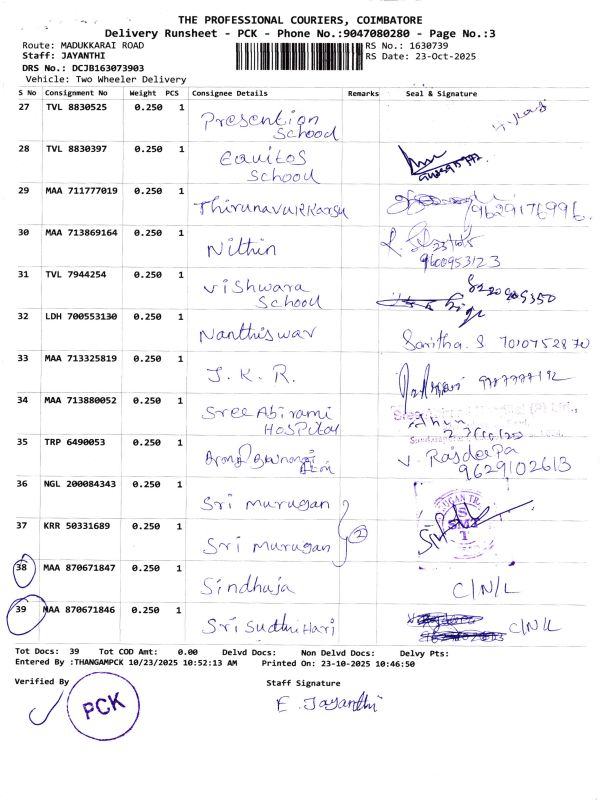 THE PROFESSIONAL COURIERS, COIMBATORE
Delivery Runsheet - PCK - Phone No.:9047080280 - Page No.:3
Route: MADUKKARAI ROAD RS No.: 1630739
Staff: JAYANTHI RS Date: 23-Oct-2025
DRS No.: DCJB163073903
Vehicle: Two Wheeler Delivery
S No Consignment No Weight PCS Consignee Details Remarks Seal & Signature
27 TVL 8830525 0.250 1 Presention School
28 TVL 8830397 0.250 1 Equitos School
29 MAA 711777019 0.250 1 Thirunavukkarsu 9629176996.
30 MAA 713869164 0.250 1 Nithin 9600953123
31 TVL 7944254 0.250 1 Vishwara School
32 LDH 700553130 0.250 1 Nanthiswar Saritha. S 7010752870
33 MAA 713325819 0.250 1 J. K. R.
34 MAA 713880052 0.250 1 Sree Abirami Hospital
35 TRP 6490053 0.250 1 V. Rajdeepa 9629102613
36 NGL 200084343 0.250 1 Sri Murugan
37 KRR 50331689 0.250 1 Sri Murugan 2 SMT
38 MAA 870671847 0.250 1 Sindhuja C/N/L
39 MAA 870671846 0.250 1 Sri Sudthi Hari C/N/L
Tot Docs: 39 Tot COD Amt: 0.00 Delvd Docs: Non Delvd Docs: Delvy Pts:
Entered By :THANGAMPCK 10/23/2025 10:52:13 AM Printed On: 23-10-2025 10:46:50
Verified By Staff Signature
PCK E. Jayanthi